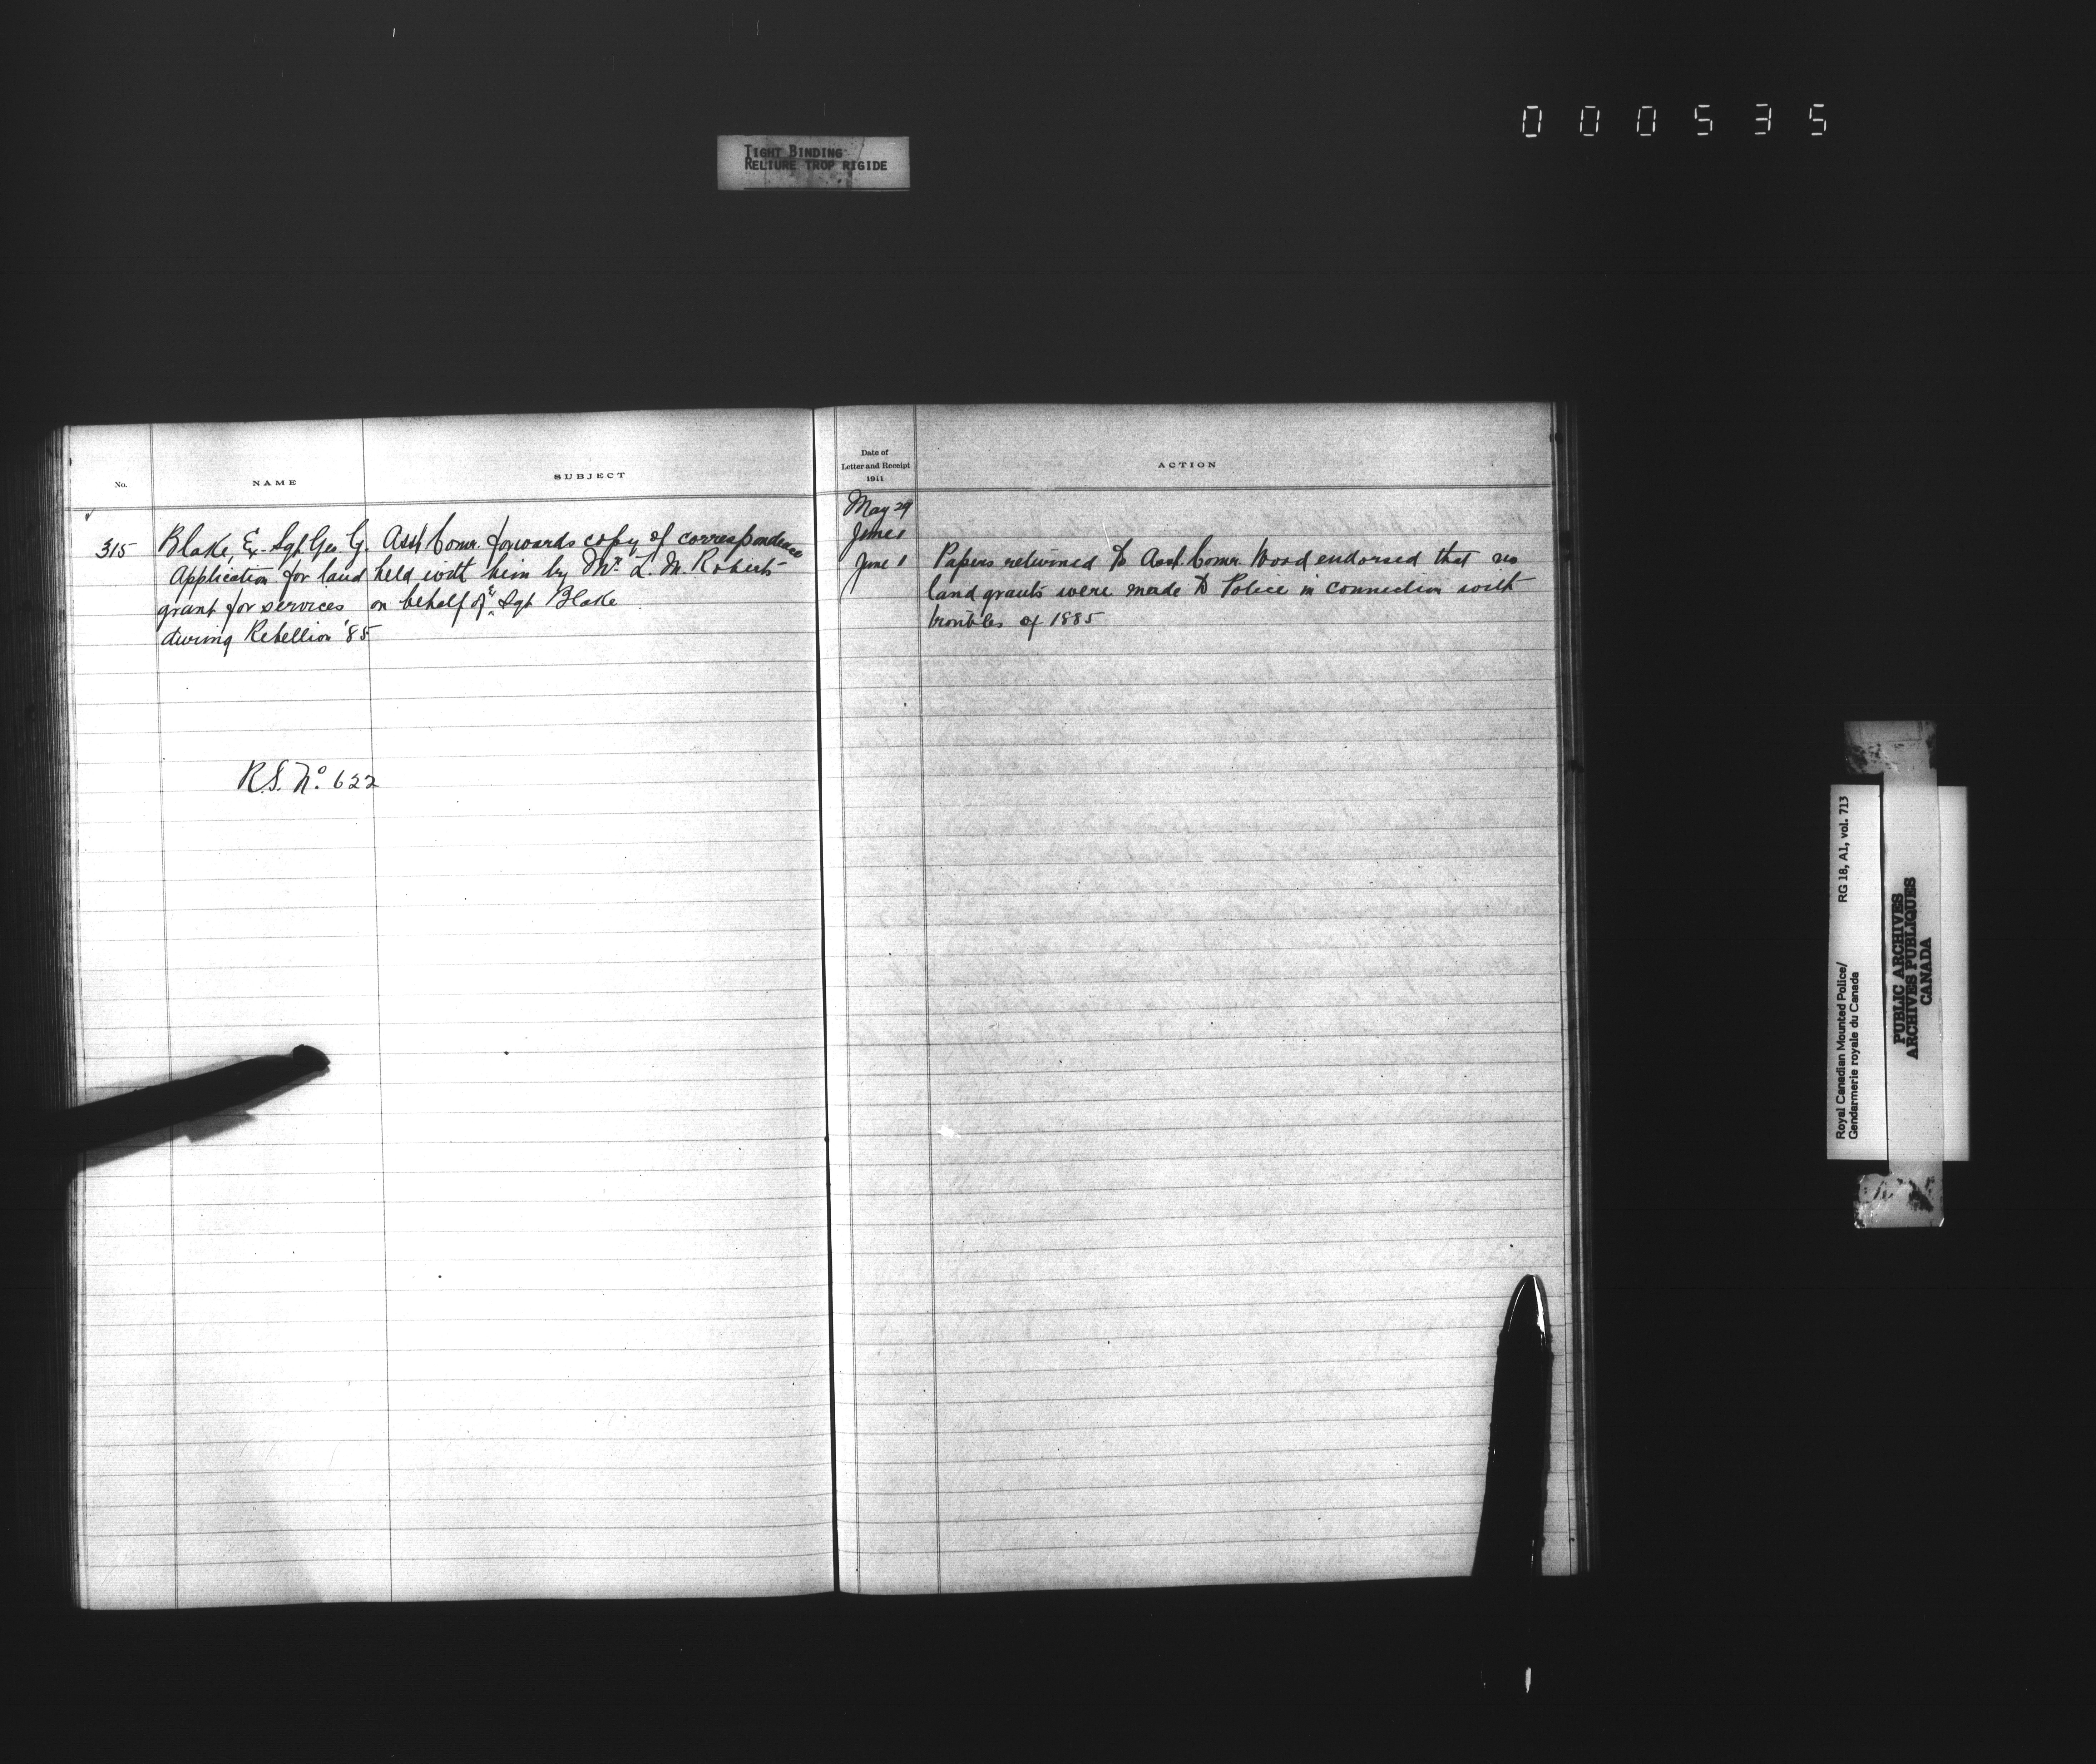 000535
TIGHT BINDING
RELIURE TROP RIGIDE
No.
NAME
SUBJECT
315
Blake, Ex-Sgt Geo G.
Application for land
grant for services
during Rebellion '85
Asst Comr. forwards copy of correspondence
held with him by Mr. L. M. Roberts
on behalf of Ex Sgt Blake
R.S. No. 622
Date of
Letter and Receipt
1911
ACTION
May 29
June 1
June 1
Papers returned to Asst. Comr. Wood endorsed that no
land grants were made to Police in connection with
troubles of 1885
Royal Canadian Mounted Police/ RG 18, A1, vol. 713
Gendarmerie royale du Canada
PUBLIC ARCHIVES
ARCHIVES PUBLIQUES
CANADA